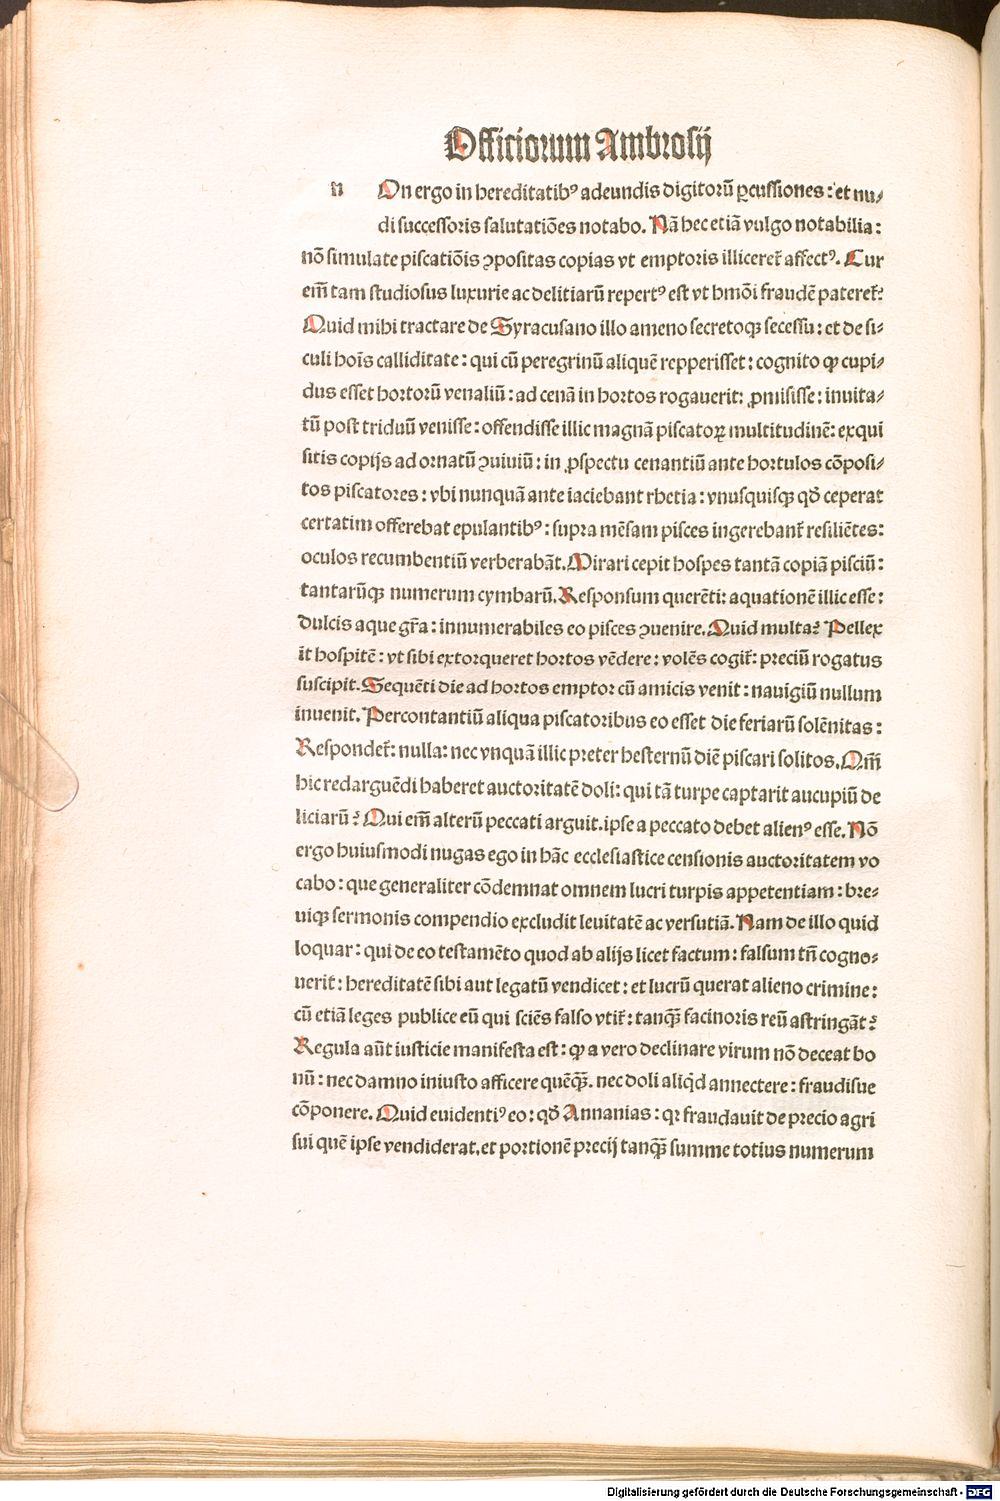 Officiorum Ambrosij
n On ergo in hereditatibꝰ adeundis digitorū ꝑcussiones: et nu⸗
di successoris salutatiōes notabo. Nā hec etiā vulgo notabilia:
nō simulate piscatiōis ꝯpositas copias vt emptoris illicereť affectꝰ. Cur
em̄ tam studiosus luxurie ac delitiarū repertꝰ est vt hmōi fraudē patereť?
Quid mihi tractare de Syracusano illo ameno secretoqꝫ secessu: et de si⸗
culi hoīs calliditate: qui cū peregrinū aliquē repperisset: cognito ꝙ cupi⸗
dus esset hortorū venaliū: ad cenā in hortos rogauerit: ꝓmisisse: inuita⸗
tū post triduū venisse: offendisse illic magnā piscatoꝝ multitudinē: exqui
sitis copijs ad ornatū ꝯuiuiū: in ꝓspectu cenantiū ante hortulos cōposi⸗
tos piscatores: vbi nunquā ante iaciebant rhetia: vnusquisqꝫ qđ ceperat
certatim offerebat epulantibꝰ: supra mēsam pisces ingerebanť resiliētes:
oculos recumbentiū verberabāt. Mirari cepit hospes tantā copiā pisciū:
tantarūqꝫ numerum cymbarū. Responsum querēti: aquationē illic esse:
dulcis aque gr̄a: innumerabiles eo pisces ꝯuenire. Quid multa? Pellex
it hospitē: vt sibi extorqueret hortos vēdere: volēs cogiť: preciū rogatus
suscipit. Sequēti die ad hortos emptor cū amicis venit: nauigiū nullum
inuenit. Percontantiū aliqua piscatoribus eo esset die feriarū solēnitas:
Respondeť: nulla: nec vnquā illic preter hesternū diē piscari solitos. Qm̄
hic redarguēdi haberet auctoritatē doli: qui tā turpe captarit aucupiū de
liciarū? Qui em̄ alterū peccati arguit. ipse a peccato debet alienꝰ esse. Nō
ergo huiusmodi nugas ego in hāc ecclesiastice censionis auctoritatem vo
cabo: que generaliter cōdemnat omnem lucri turpis appetentiam: bre⸗
uiqꝫ sermonis compendio excludit leuitatē ac versutiā. Nam de illo quid
loquar: qui de eo testamēto quod ab alijs licet factum: falsum tn̄ cogno⸗
uerit: hereditatē sibi aut legatū vendicet: et lucrū querat alieno crimine:
cū etiā leges publice eū qui sciēs falso vtiť: tanqꝫ̄ facinoris reū astringāt?
Regula aūt iusticie manifesta est: ꝙ a vero declinare virum nō deceat bo
nū: nec damno iniusto afficere quēqꝫ̄. nec doli aliqd̓ annectere: fraudisue
cōponere. Quid euidentiꝰ eo: qđ Annanias: qꝛ fraudauit de precio agri
sui quē ipse vendiderat. et portionē precij tanqꝫ̄ summe totius numerum
Digitalisierung gefördert durch die Deutsche Forschungsgemeinschaft - DFG